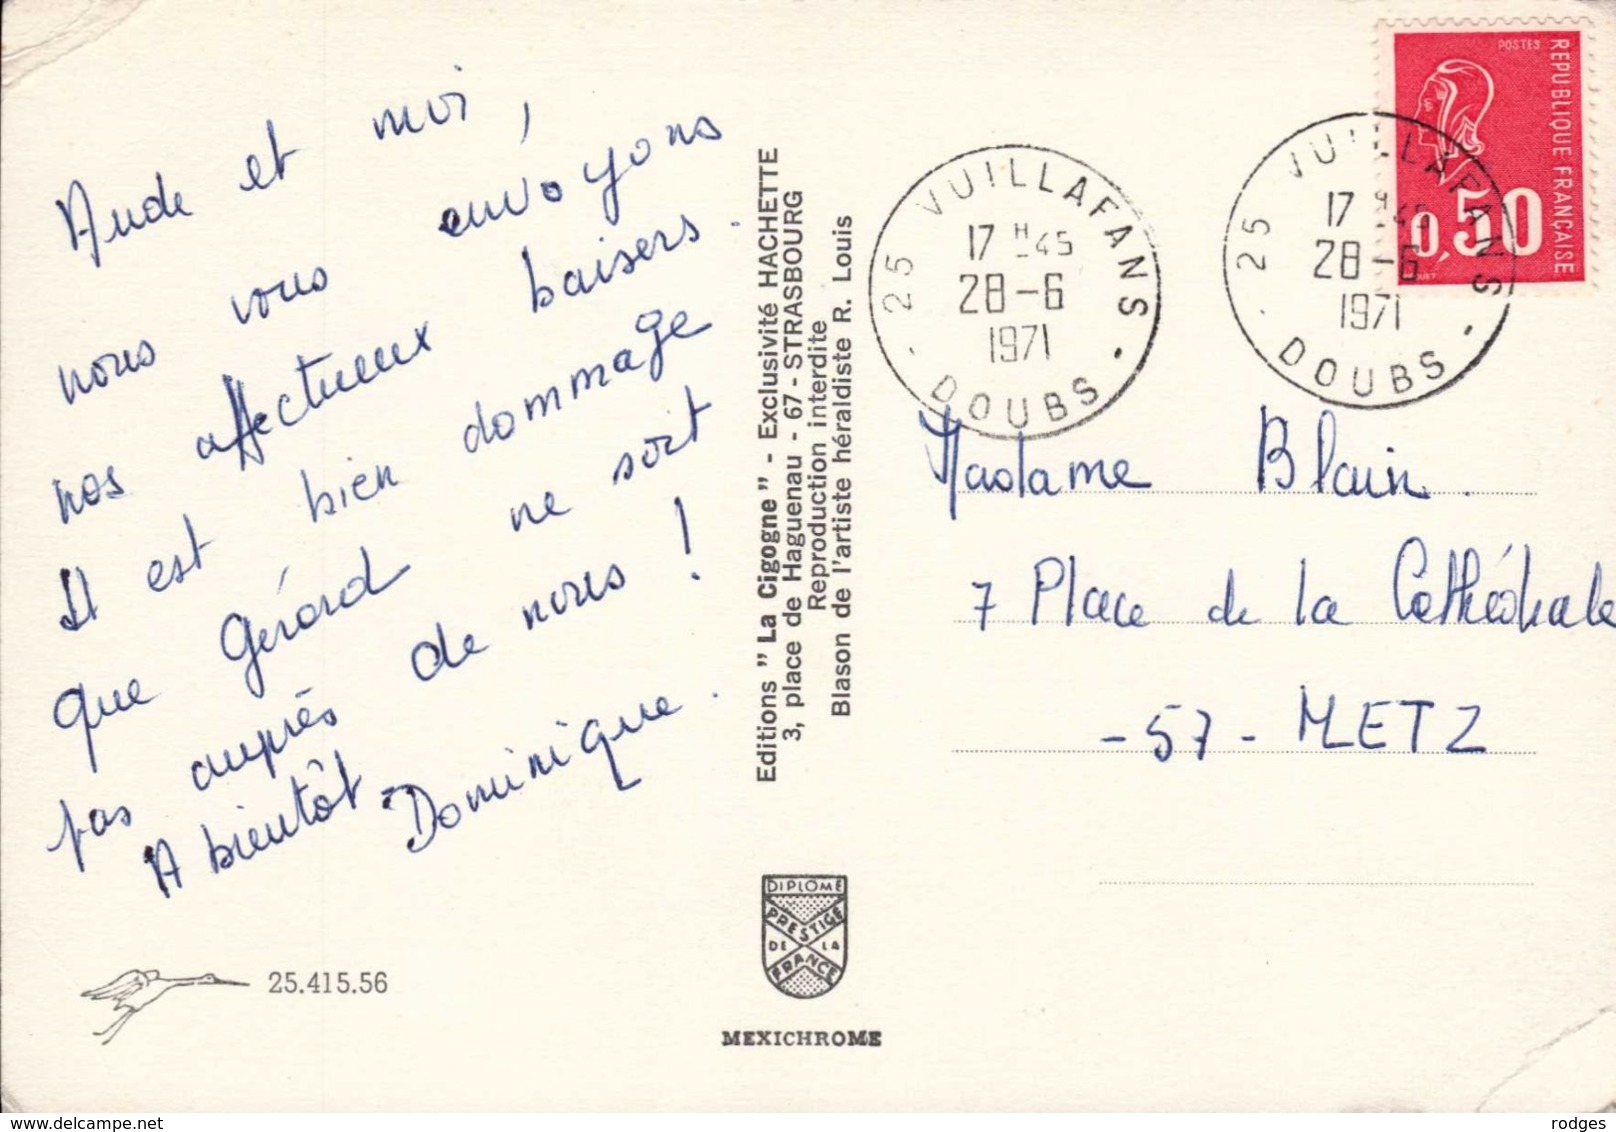 Aude et moi,
nous vous envoyons
nos affectueux baisers.
Il est bien dommage
que Gérard ne soit
pas auprès de nous !
A bientôt.
Dominique.
25.415.56
Editions "La Cigogne" - Exclusivité HACHETTE
3, place de Haguenau - 67 - STRASBOURG
Reproduction interdite
Blason de l'artiste héraldiste R. Louis
DIPLOME
PRESTIGE
DE LA
FRANCE
MEXICHROME
25 VUILLAFANS
17 H 45
28-6
1971
DOUBS
25 VUILLAFANS
17 H 45
28-6
1971
DOUBS
POSTES
REPUBLIQUE FRANÇAISE
0,50
Madame Blain.
7 Place de la Cathédrale
-57- METZ
rodges